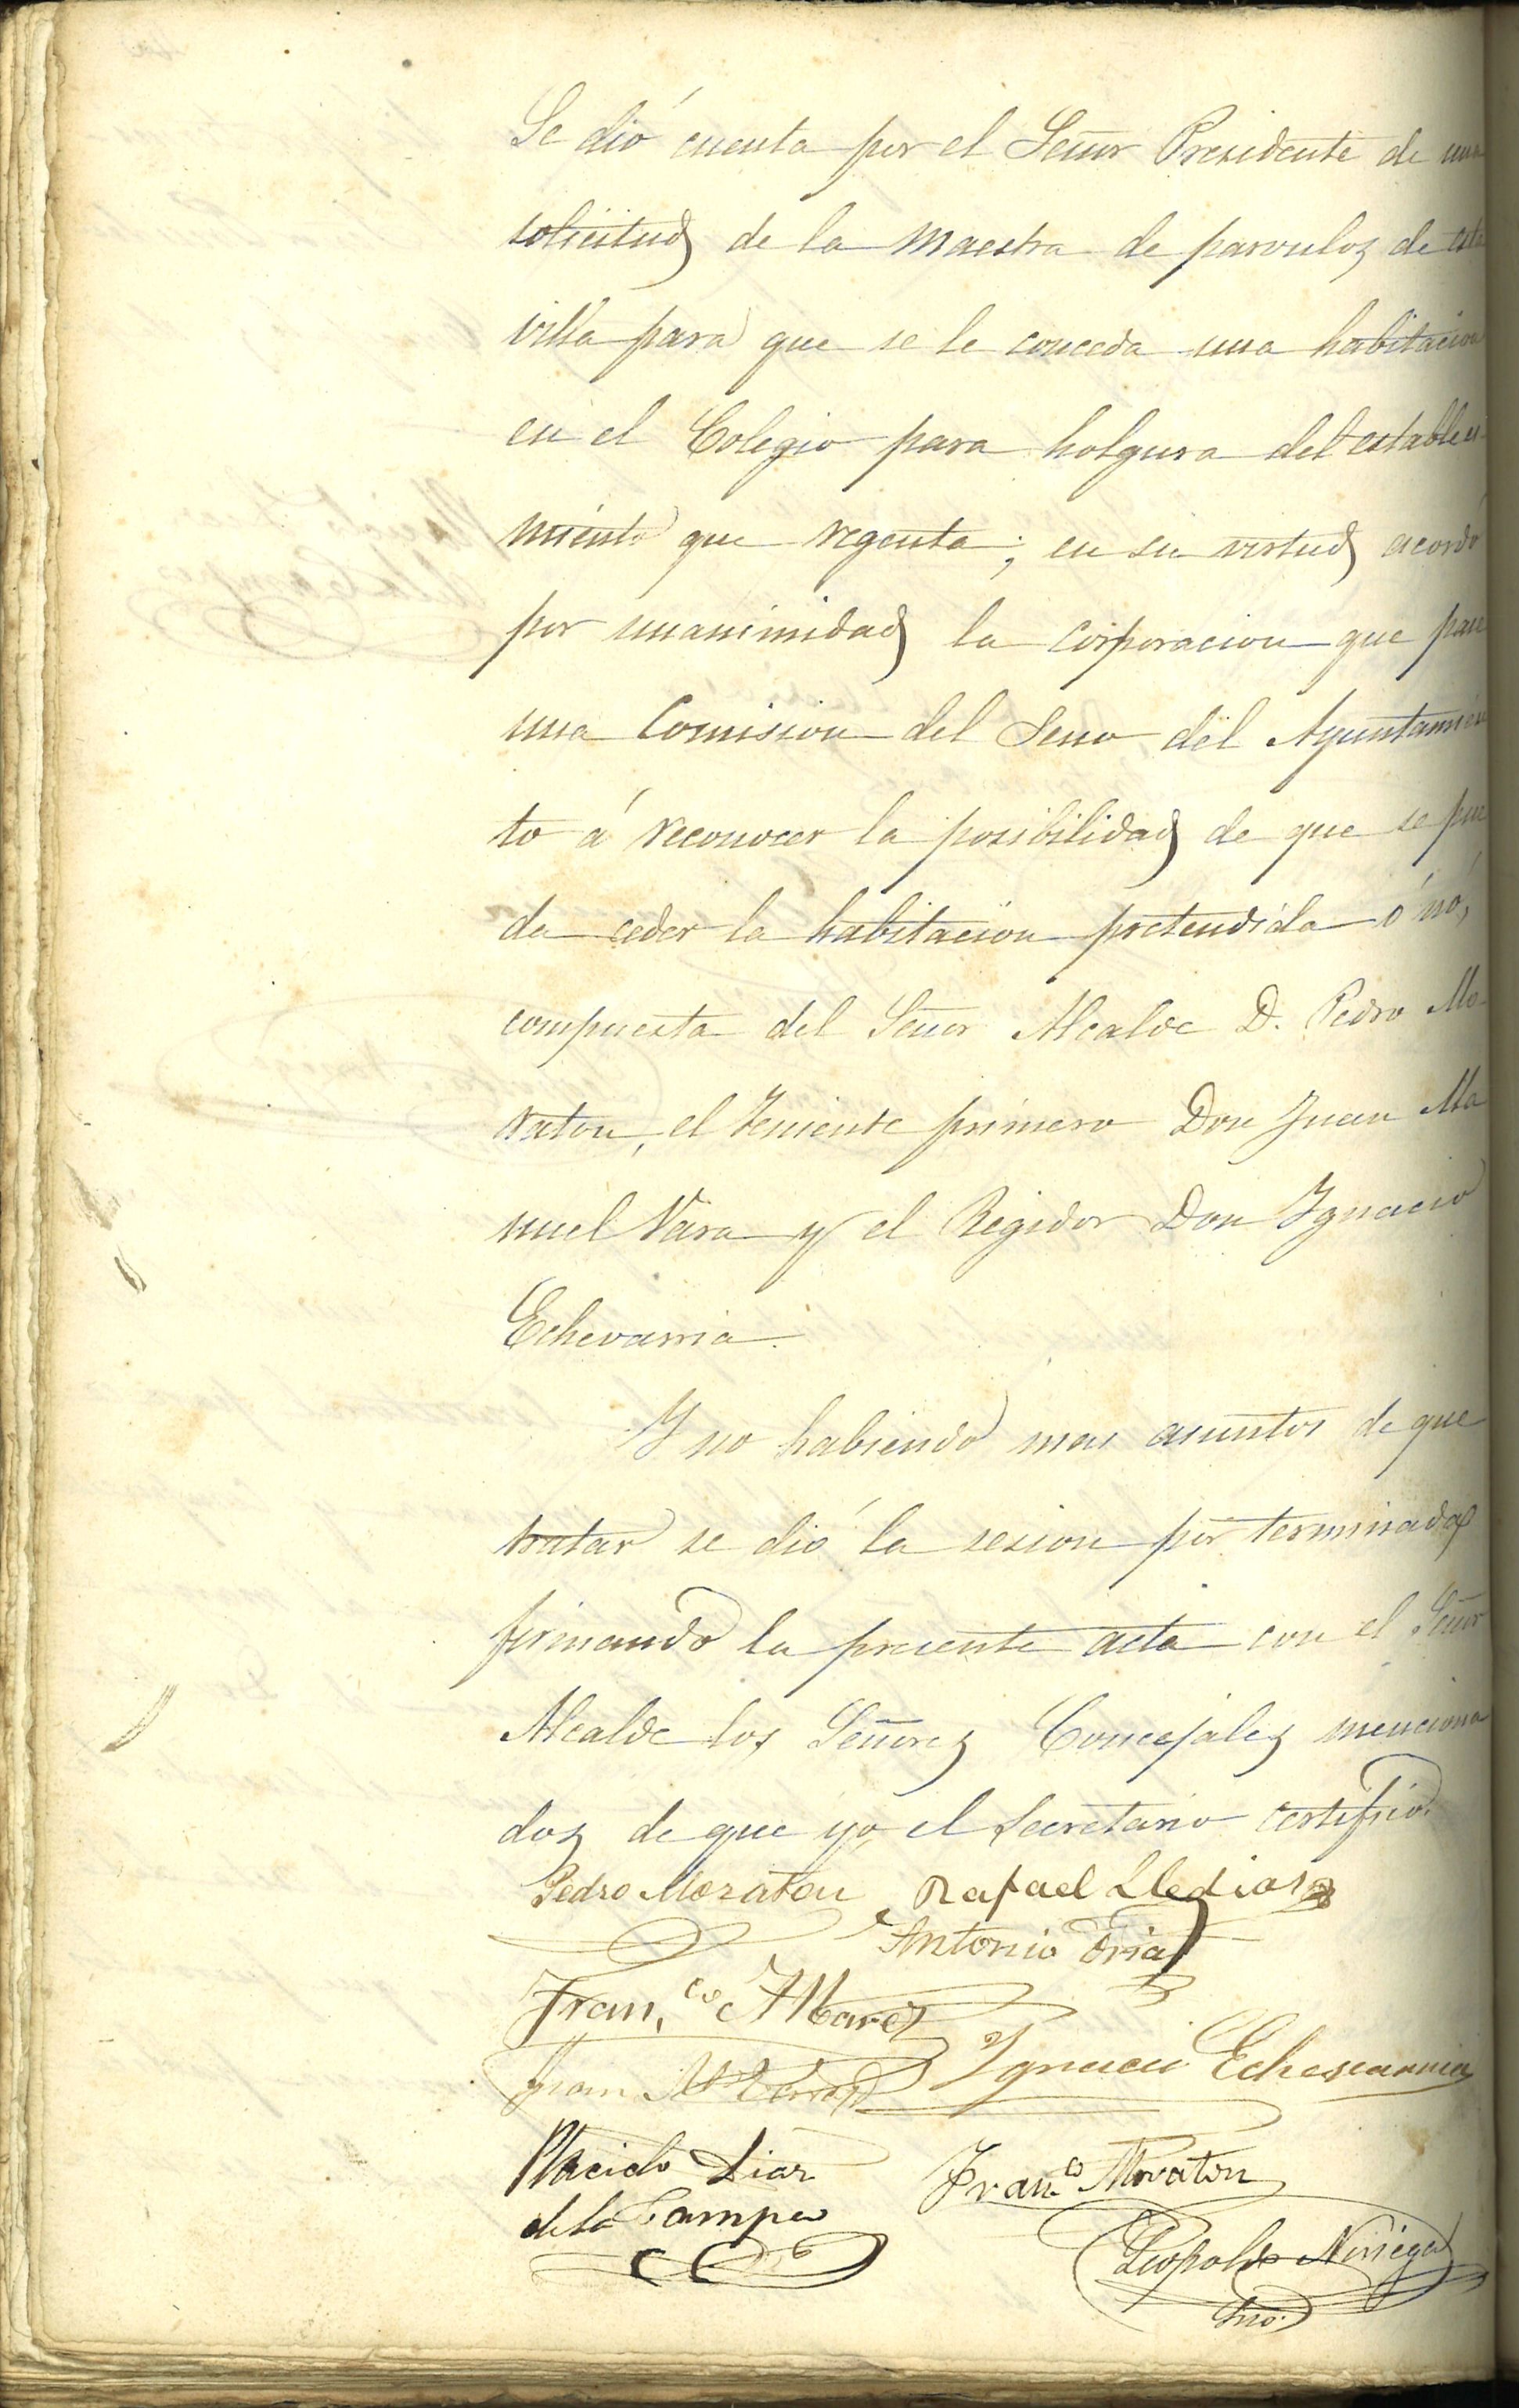 Se dió cuenta por el Señor Presidente de una
solicitud de la Maestra de parvulos de esta
villa para que se le conceda una habitacion
en el Colegio para holgura del estableci-
miento que regenta; en su virtud acordó
por unanimidad la Corporacion que pase
una Comision del Seno del Ayuntamien
to á reconocer la posibilidad de que se pue
da ceder la habitacion pretendida ó nó,
compuesta del Señor Alcalde D. Pedro Mo-
raton, el Teniente primero Don Juan Ma
nuel Vara y el Regidor Don Ignacio
Echevarria.
Y no habiendo mas asuntos de que
tratar se dió la sesion por terminada
firmando la presente acta con el Señor
Alcalde los Señores Concejales menciona
dos de que yo el Secretario certifico.
Pedro Moraton Rafael Lledias
Antonio Oria
Fran.co Alvarez
Juan Ml Vara Ignacio Echevarria
Placido Diaz Fran.co Moraton
de la Campa
Leopoldo Noriega
Srio.